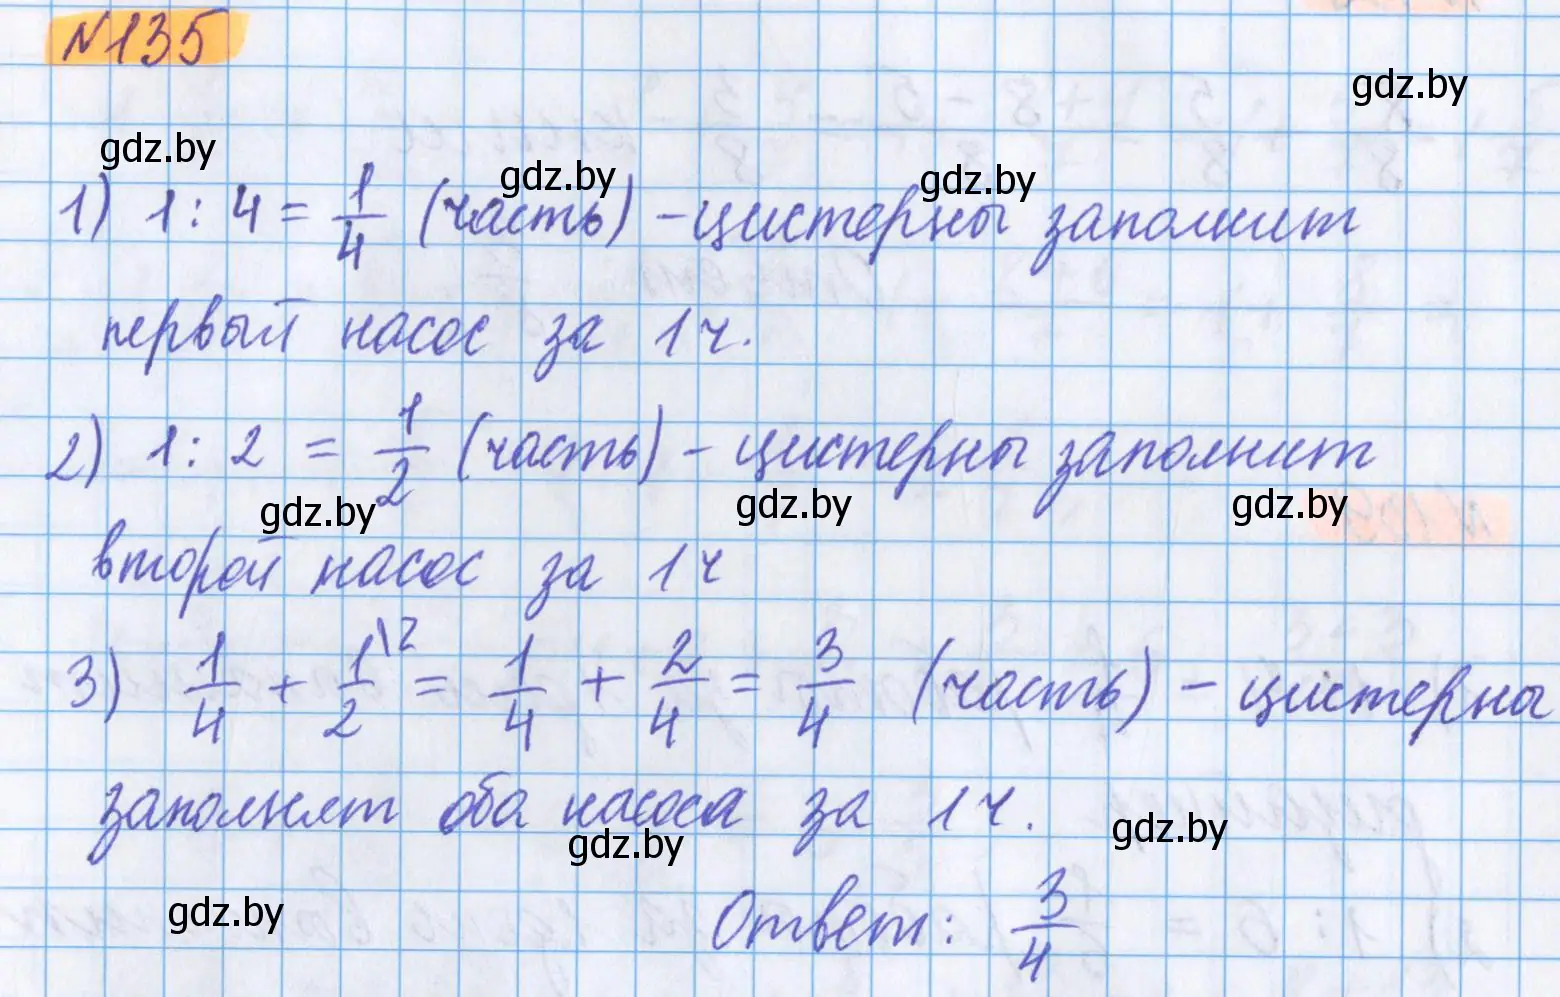 №135
gdz.by
gdz.by gdz.by gdz.by
1) 1 : 4 = 1/4 (часть) – цистерны заполнит
первый насос за 1ч.
2) 1 : 2 = 1/2 (часть) – цистерны заполнит
gdz.by gdz.by gdz.by
второй насос за 1ч
3) 1/4 + 1/2 \2 = 1/4 + 2/4 = 3/4 (часть) – цистерны
заполнят оба насоса за 1ч.
gdz.by gdz.by
gdz.by
Ответ: 3/4